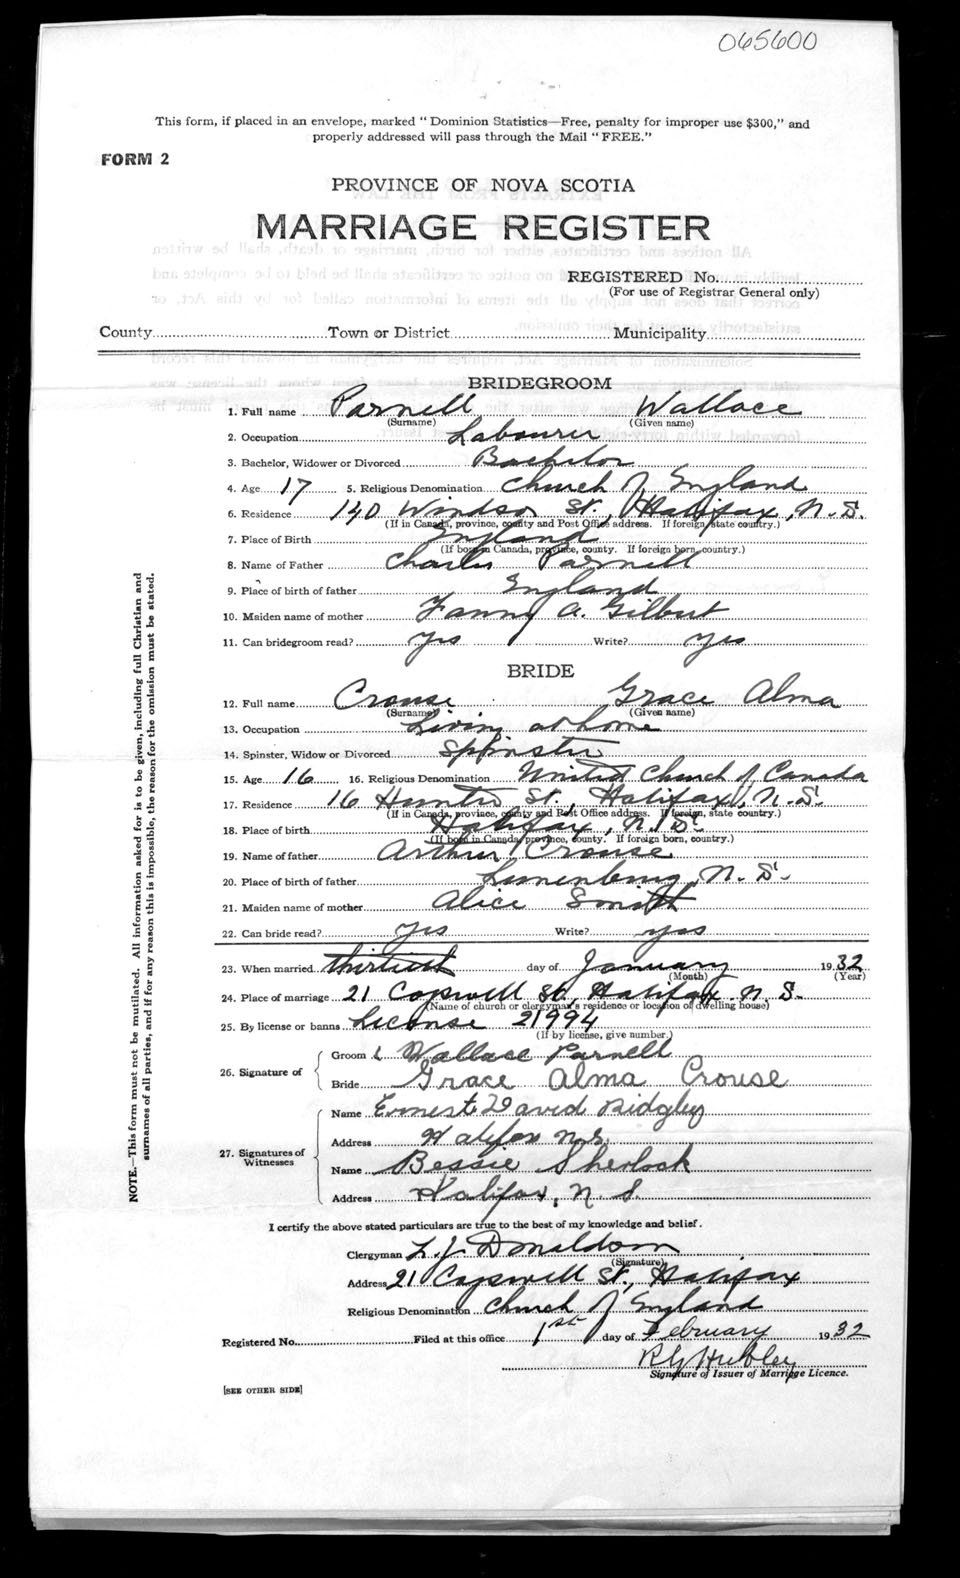 065600
This form, if placed in an envelope, marked "Dominion Statistics—Free, penalty for improper use $300," and
properly addressed will pass through the Mail "FREE."
FORM 2
PROVINCE OF NOVA SCOTIA
MARRIAGE REGISTER
REGISTERED No.
(For use of Registrar General only)
County Town or District Municipality
BRIDEGROOM
1. Full name Parnell Wallace
(Surname) (Given name)
2. Occupation Labourer
3. Bachelor, Widower or Divorced Bachelor
4. Age 17 5. Religious Denomination Church of England
6. Residence 140 Windsor St., Halifax, N.S.
(If in Canada, province, county and Post Office address. If foreign, state country.)
7. Place of Birth England
(If born in Canada, province, county. If foreign born, country.)
8. Name of Father Charles Parnell
9. Place of birth of father England
10. Maiden name of mother Fanny A. Gilbert
11. Can bridegroom read? yes Write? yes
BRIDE
12. Full name Crouse Grace Alma
(Surname) (Given name)
13. Occupation Living at home
14. Spinster, Widow or Divorced Spinster
15. Age 16 16. Religious Denomination United Church of Canada
17. Residence 16 Hunter St., Halifax, N.S.
(If in Canada, province, county and Post Office address. If foreign, state country.)
18. Place of birth Halifax, N.S.
(If born in Canada, province, county. If foreign born, country.)
19. Name of father Arthur Crouse
20. Place of birth of father Lunenburg, N.S.
21. Maiden name of mother Alice Smith
22. Can bride read? yes Write? yes
23. When married thirtieth day of January 1932
(Month) (Year)
24. Place of marriage 21 Cogswell St, Halifax N.S.
(Name of church or clergyman's residence or location of dwelling house)
25. By license or banns License 21994
(If by license, give number.)
26. Signature of
Groom Wallace Parnell
Bride Grace Alma Crouse
27. Signatures of Witnesses
Name Ernest David Ridgley
Address Halifax N.S.
Name Bessie Sherlock
Address Halifax, N.S.
I certify the above stated particulars are true to the best of my knowledge and belief.
Clergyman L. J. Donaldson
(Signature)
Address 21 Cogswell St., Halifax
Religious Denomination Church of England
Registered No. Filed at this office 1st day of February 1932
R G Hubley
Signature of Issuer of Marriage Licence.
[SEE OTHER SIDE]
NOTE.—This form must not be mutilated. All information asked for is to be given, including full Christian and
surnames of all parties, and if for any reason this is impossible, the reason for the omission must be stated.